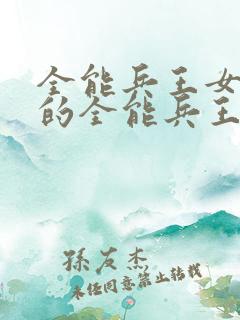 全能兵王女
的全能兵王
孫友杰
未经同意禁止转载